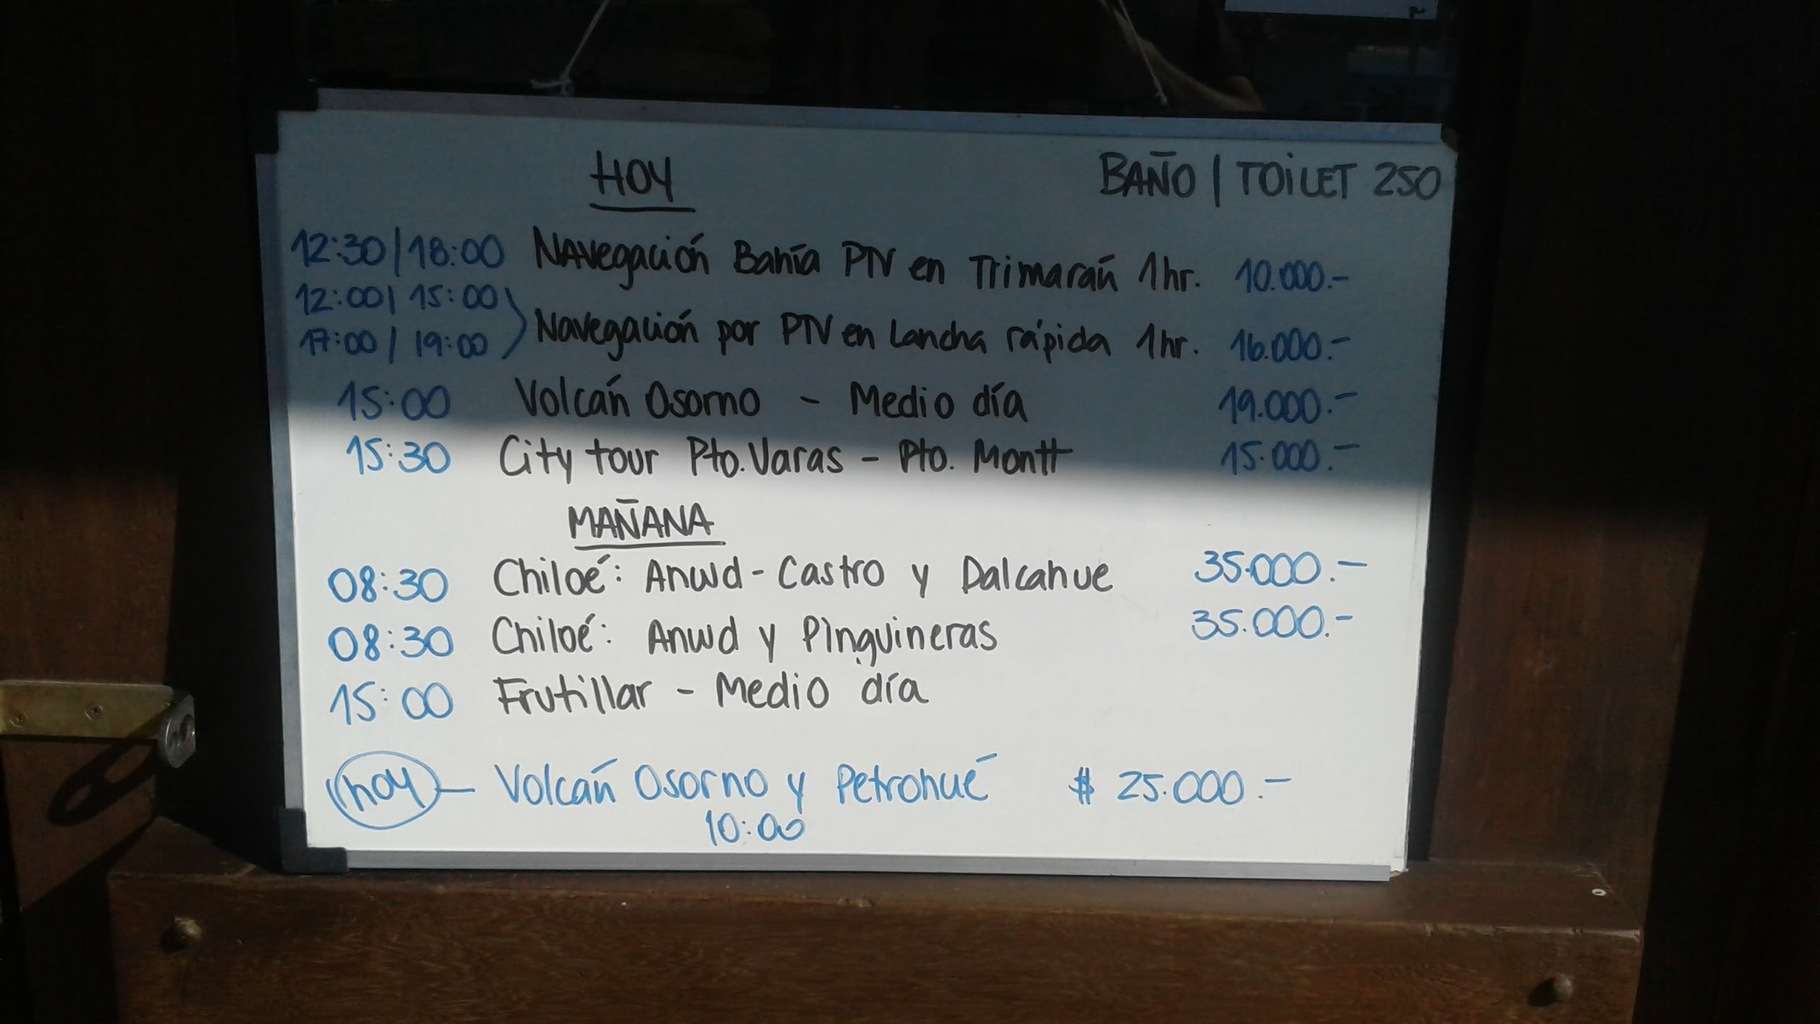 HOY
BAÑO | TOILET 250
12:30 | 18:00 Navegación Bahía PTV en Trimarán 1hr. 10.000.-
12:00 | 15:00
17:00 | 19:00 Navegación por PTV en Lancha rápida 1hr. 16.000.-
15:00 Volcán Osorno - Medio día 19.000.-
15:30 City tour Pto. Varas - Pto. Montt 15.000.-
MAÑANA
08:30 Chiloé: Ancud - Castro y Dalcahue 35.000.-
08:30 Chiloé: Ancud y Pinguineras 35.000.-
15:00 Frutillar - Medio día
hoy - Volcán Osorno y Petrohué $ 25.000.-
10:00